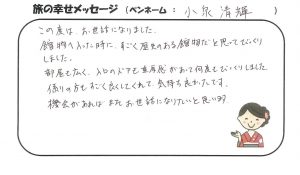 旅の幸せメッセージ (ペンネーム : 小泉清輝 )
この度は、お世話になりました。
館内入った時に、すごく歴史のある館内だと思ってびっくり
しました。
部屋も広く、入口のドアも重厚感があって何度もびっくりしました
係りの方もすごく良くしてくれて、気持ち良かったです。
機会があれば またお世話になりたいと思います